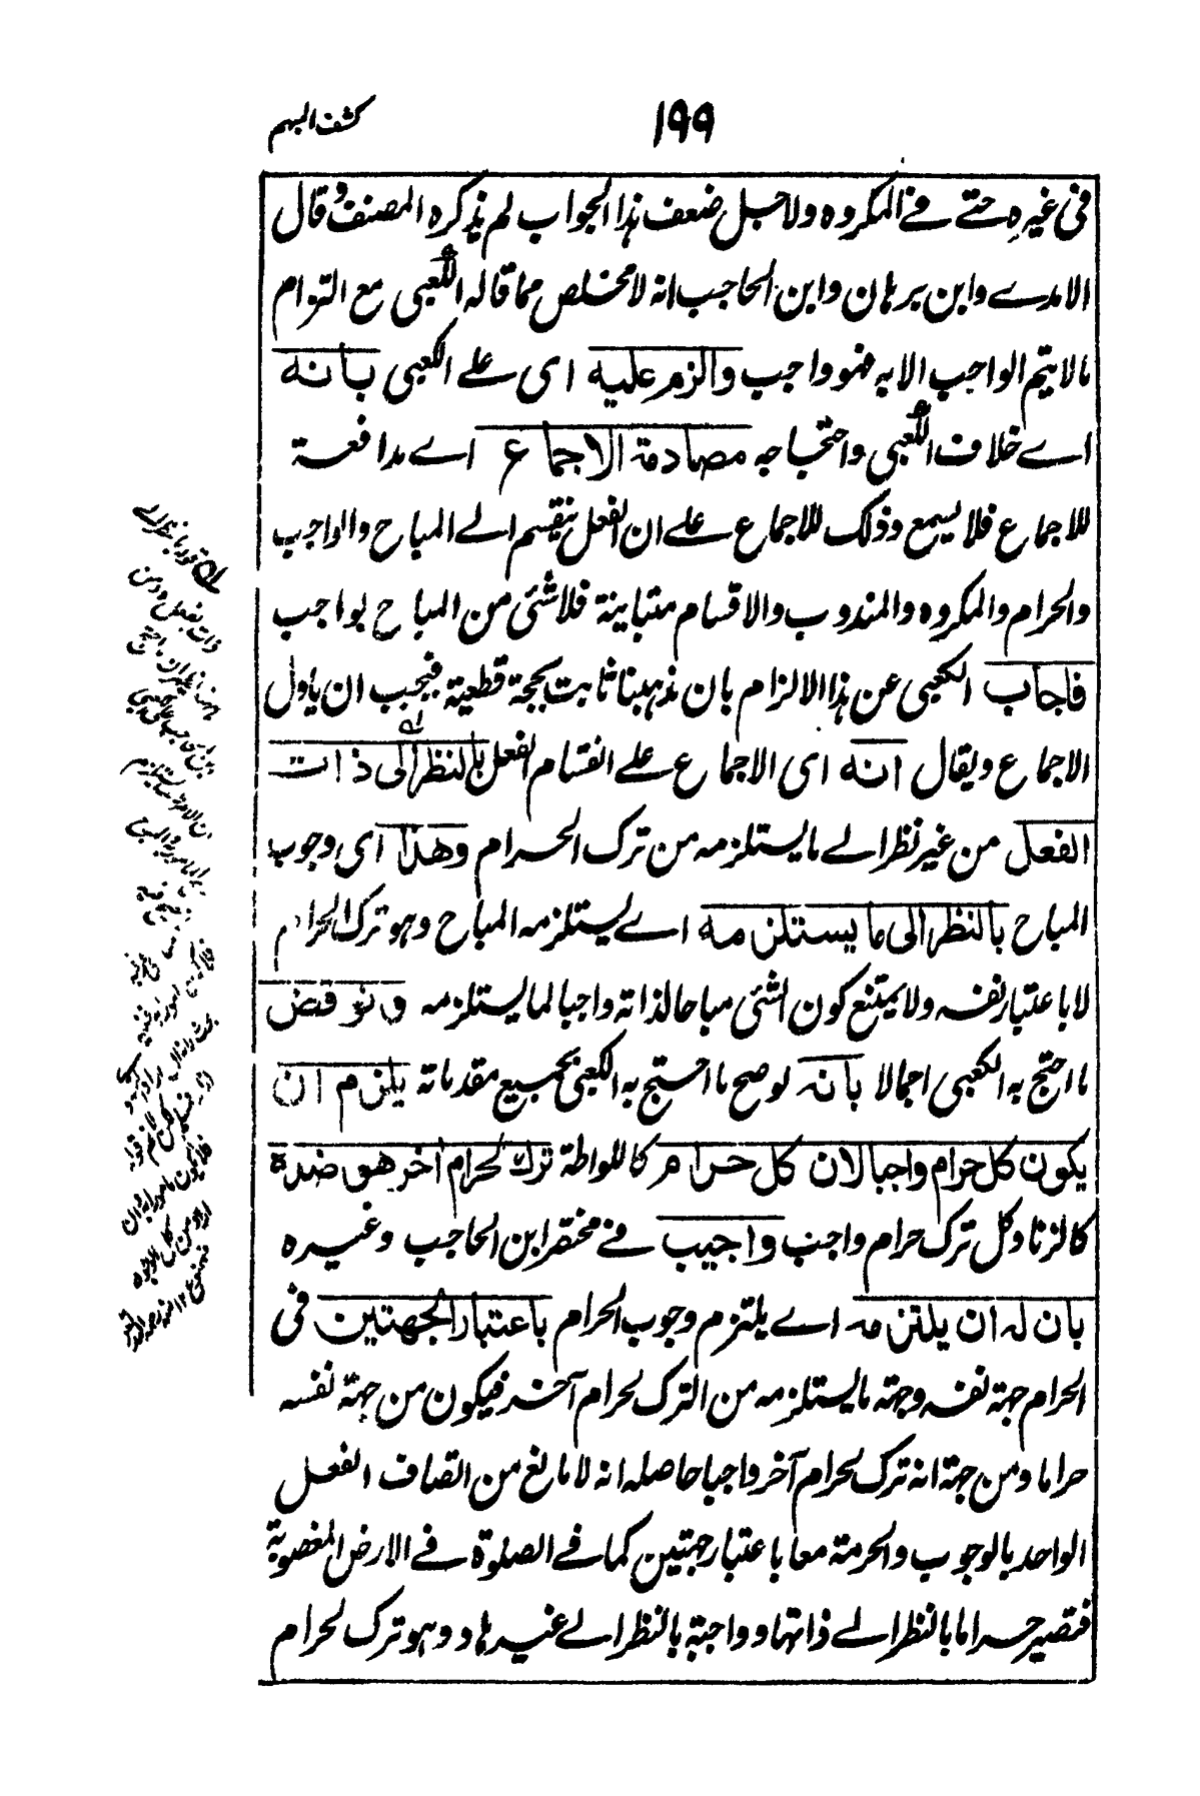 ١٩٩
كشف المبهم
فى غيره حتے فے المكروه ولاجل ضعف هذا الجواب لم يذكره المصنف وقال
الامدے وابن برهان وابن الحاجب انه لا مخلص مما قاله الكعبى مع التزام
مالا يتم الواجب الا به فهو واجب والزم عليه اى علے الكعبى بانه
اے خلاف الكعبى واحتجاجه مصادمة الاجماع اے مدافعة
للاجماع فلا يسمع وذلك للاجماع علے ان الفعل ينقسم الے المباح والواجب
والحرام والمكروه والمندوب والاقسام متباينة فلا شئى من المباح بواجب
فاجاب الكعبى عن هذا الالزام بان مذهبنا ثابت بحجة قطعية فيجب ان ياول
الاجماع ويقال انه اى الاجماع علے انقسام الفعل بالنظر الى ذات
الفعل من غير نظر الے ما يستلزمه من ترك الحرام وهذا اى وجوب
المباح بالنظر الى ما يستلزمه اے يستلزمه المباح وهو ترك الحرام
لا باعتبار نفسه ولا يمتنع كون الشئى مباحا لذاته واجبا لما يستلزمه ونوقض
ما احتج به الكعبى اجمالا بانه لو صح ما احتج به الكعبى بجميع مقدماته يلزم ان
يكون كل حرام واجبا لان كل حرام كاللواطة ترك لحرام اخر هو ضده
كالزنا وكل ترك حرام واجب واجيب فے مختصر ابن الحاجب وغيره
بان له ان يلتزمه اے يلتزم وجوب الحرام باعتبار الجهتين فى
الحرام جهة نفسه وجهة ما يستلزمه من الترك لحرام آخر فيكون من جهة نفسه
حراما ومن جهة انه ترك لحرام آخر واجبا حاصله انه لا مانع من اتصاف الفعل
الواحد بالوجوب والحرمة معا باعتبار جهتين كما فے الصلوة فے الارض المغصوبة
فتصير حراما بالنظر الے ذاتها وواجبة بالنظر الے غيرها وهو ترك لحرام